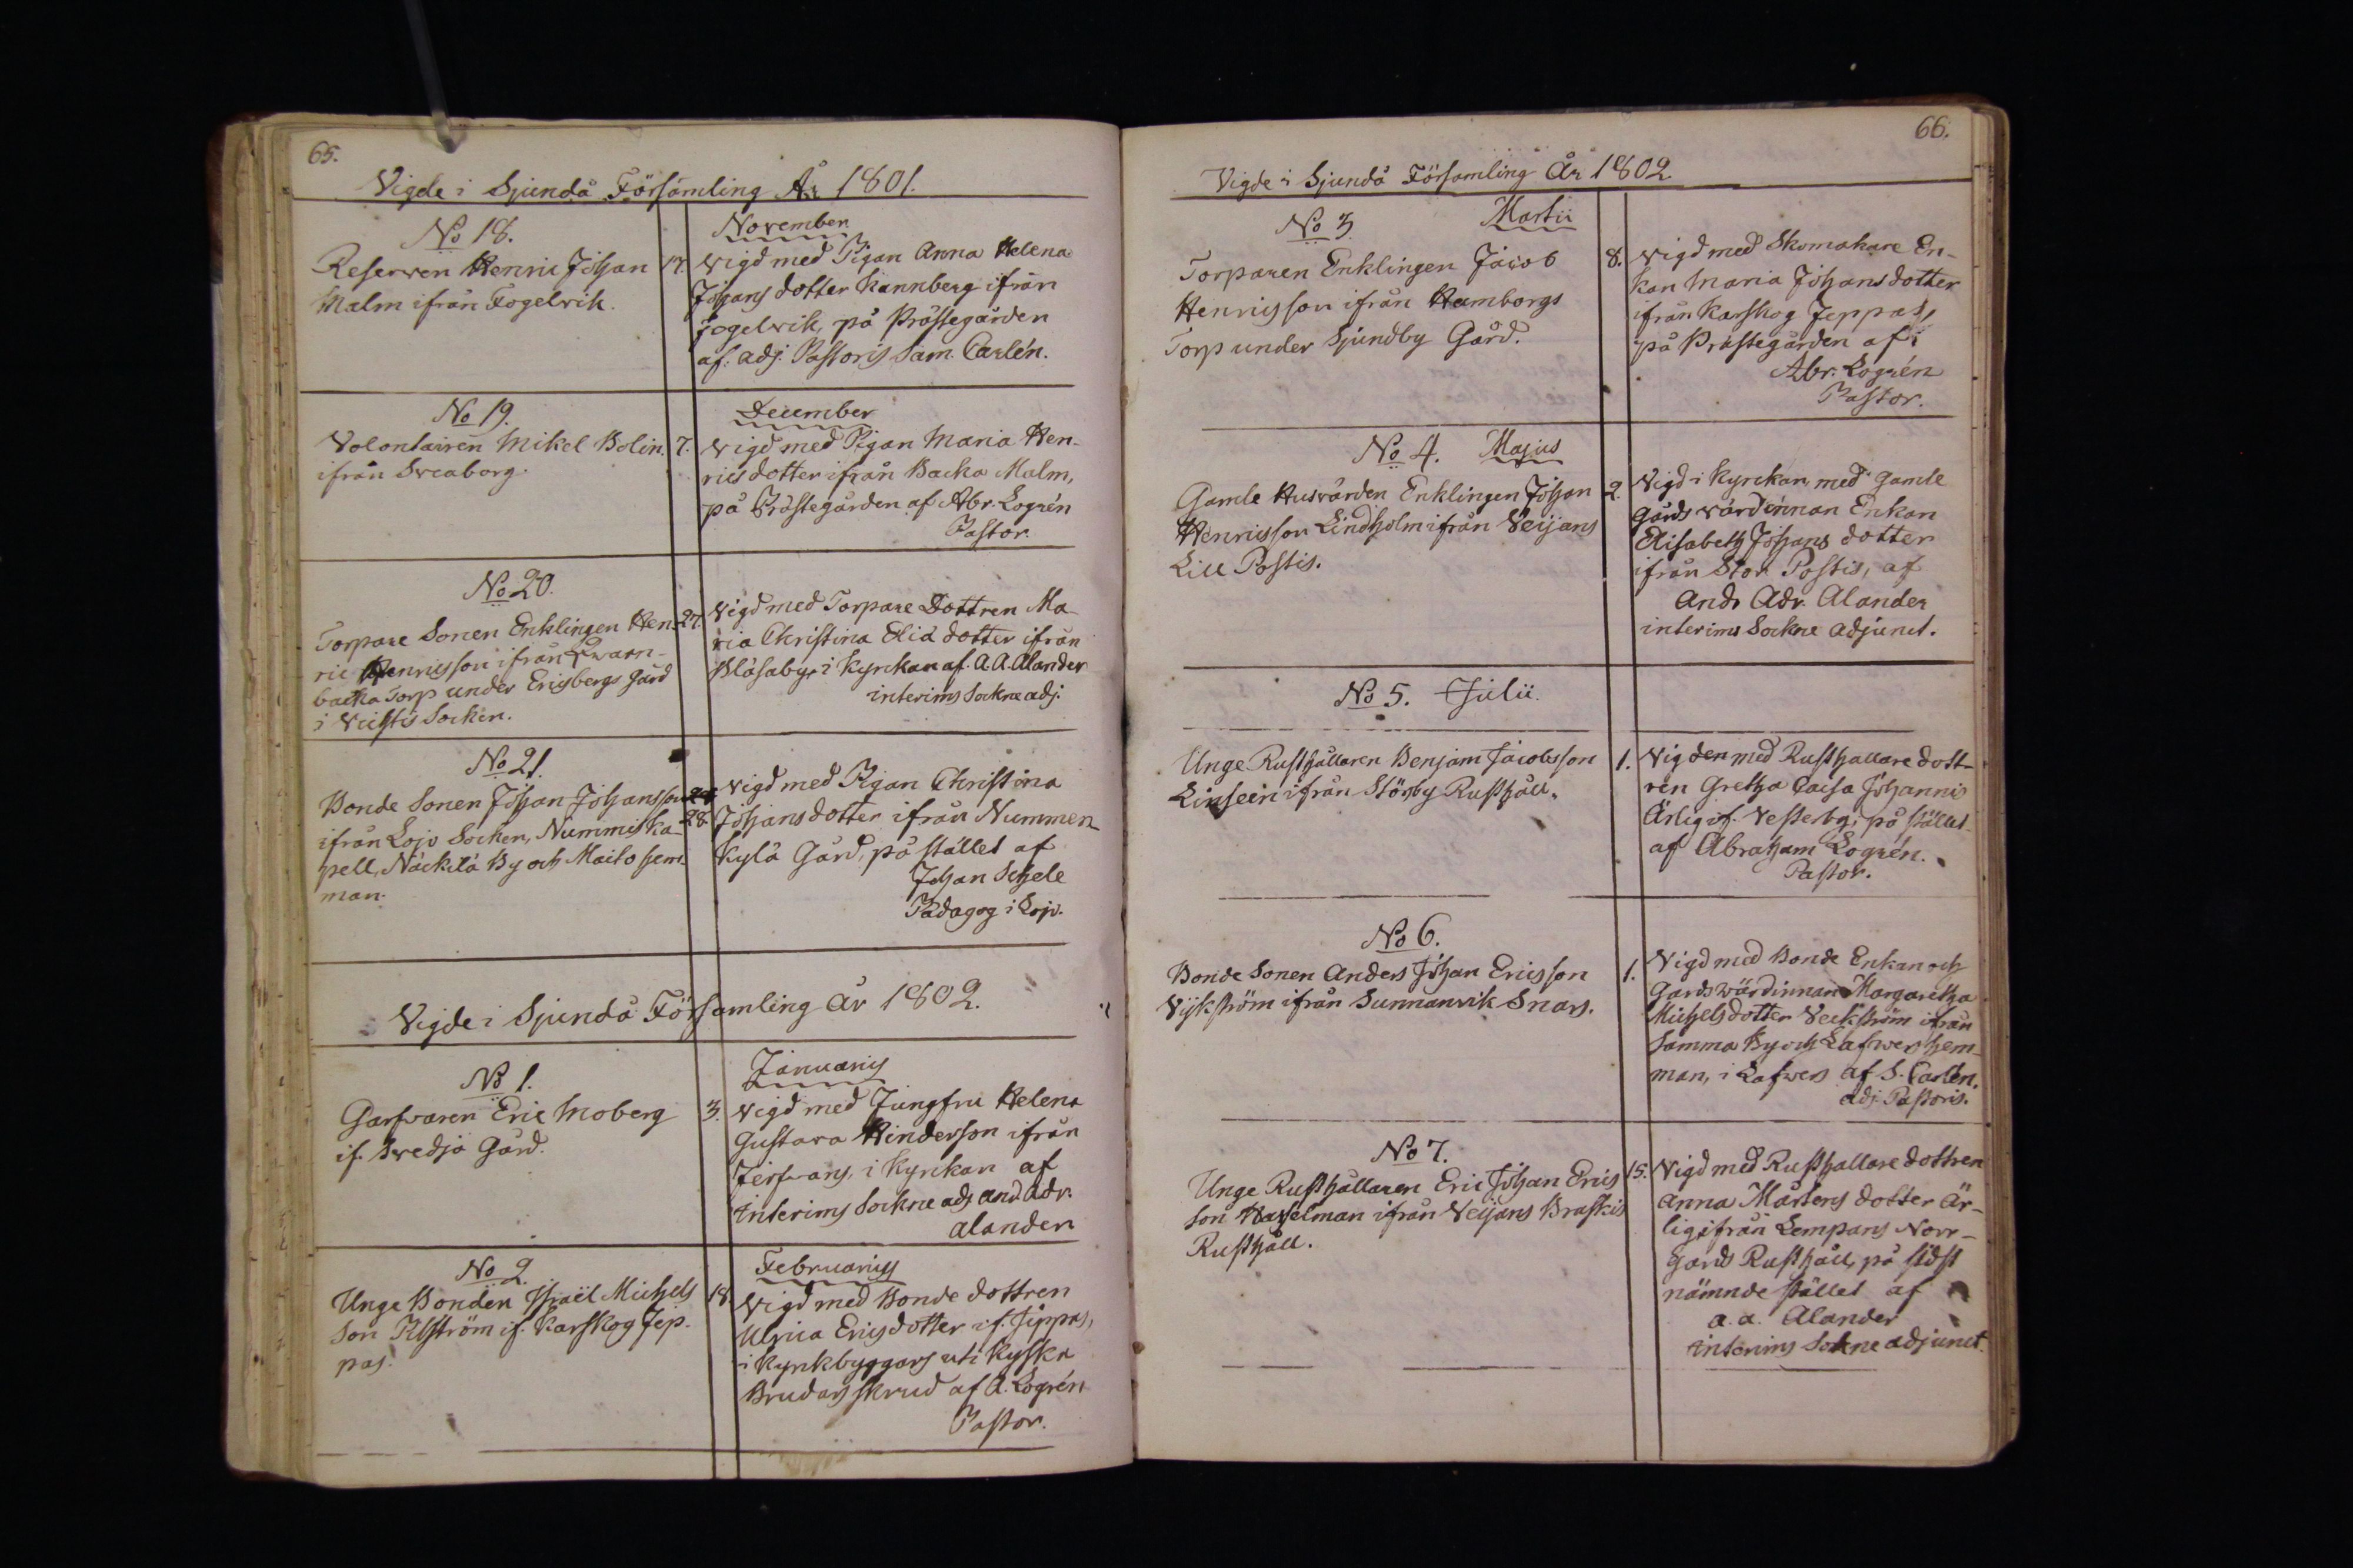 65.
Vigde i Sjundå Församling År 1801.
No 18.
Reserven Henric Johan
Malm ifrån Fogelvik.
17.
November
Vigd med Pigan Anna Helena
Johans dotter Kannberg ifrån
Fogelvik, på Prästegården
af. adj. Pastoris Sam. Carlén.
No 19.
Volontairen Mikel Bolin
ifrån Sveaborg.
7.
December
Vigd med Pigan Maria Hen-
rics dotter ifrån Backa Malm,
på Prästegården af Abr. Logrén
Pastor.
No 20.
Torpare Sonen Enklingen Hen-
ric Henricsson ifrån Qwarn-
backa Torp under Ericsbergs Gård
i Vichtis Socken.
27.
Vigd med Torpare Dottren Ma-
ria Christina Eliæ dotter ifrån
Blåsaby, i Kyrckan af. A. A. Alander
interims Sockne adj.
No 21.
Bonde Sonen Johan Johansson
ifrån Lojo Socken, Nummis Ka-
pell, Näckilä By och Maito hem-
man.
28.
Vigd med Pigan Christina
Johans dotter ifrån Nummen-
Kylä Gård, på stället af
Johan Schele
Pædagog i Lojo.
Vigde i Sjundå Församling År 1802.
No 1.
Garfvaren Eric Moberg
if. Svedja Gård.
3.
Januarius
Vigd med Jungfru Helena
Gustava Hinderson ifrån
Jerfvans, i Kyrckan af
Interims Sockne adj And. Adr.
Alander
No 2.
Unge Bonden Israël Michels
Son Alström if. Karskog Jep-
pas.
18.
Februarius
Vigd med Bonde dottren
Ulrica Erics dotter if. Jeppas,
i Kyrkbyggars uti Kyska
Brudars skrud af A. Logrén
Pastor.
66.
Vigde i Sjundå Församling År 1802.
No 3 Martii
Torparen Enklingen Jacob
Henricsson ifrån Humborgs
Torp under Sjundby Gård.
8.
Vigd med Skomakare En-
kan Maria Johans dotter
ifrån Karskog Jeppas,
på Prästegården af
Abr: Logrén
Pastor.
No 4. Majus
Gamle Husvärden Enklingen Johan
Henricsson Lindholm ifrån Veijans
Lill Postis.
2.
Vigd i Kyrckan, med Gamle
Gårds värdinnan Enkan
Elisabeth Johans dotter
ifrån Stor Postis, af
And. Adr. Alander
interims Sockne Adjunct.
No 5. Julii
Unge Rusthållaren Benjam Jacobsson
Linseen ifrån Störsby Rusthåll.
1.
Vigden med Rusthållare dott-
ren Gretha Caisa Johannis
Ärlig if. Vesterby, på stället
af Abraham Logrén.
Pastor.
No 6.
Bonde Sonen Anders Johan Ericsson
Vijkström ifrån Sunnanvik Snars.
1.
Vigd med Bonde Enkan och
Gårds wärdinnan Margaretha
Michels dotter Veckström ifrån
Samma By och Lafwers hem-
man, i Lafwers af S. Carlén.
adj. Pastoris.
No 7.
Unge Rusthållaren Eric Johan Erics
Son Hasselman ifrån Veijans Braskis
Rusthåll.
15.
Vigd med Rusthållare dottren
Anna Mårtens dotter Är-
lig ifrån Lempans Norr-
Gårds Rusthåll, på sidst
nämnde stället af
A. A. Alander
Interims Sockne adjunct.